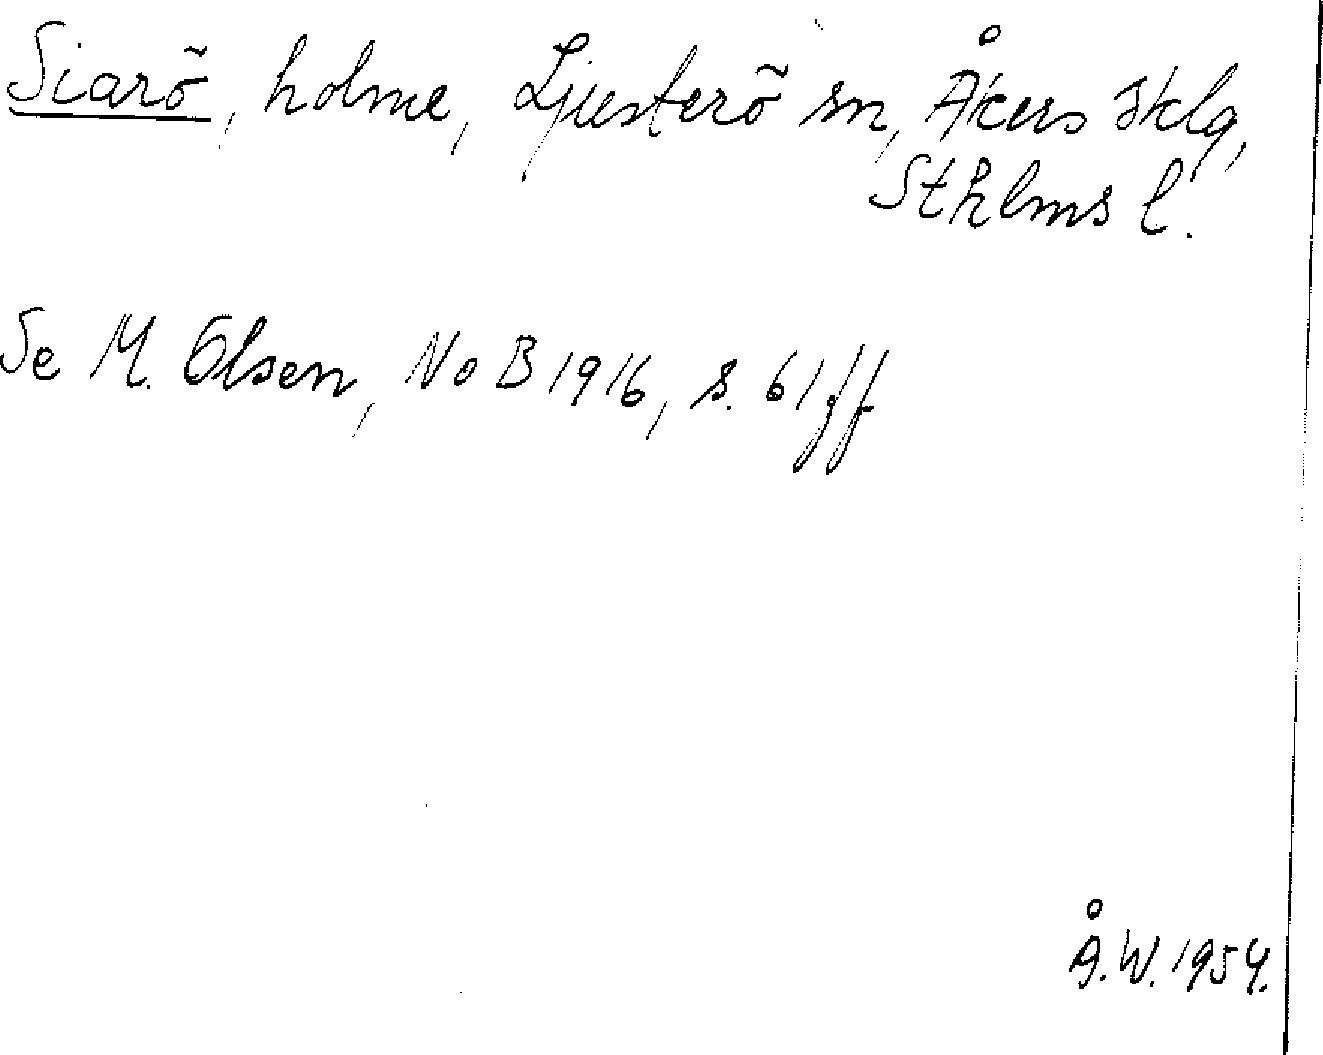 Siarö, holme, Ljusterö sn, Åkers sklg,
Sthlms l.
Se M. Olsen, NoB 1916, s. 61 ff
Å.W. 1954.